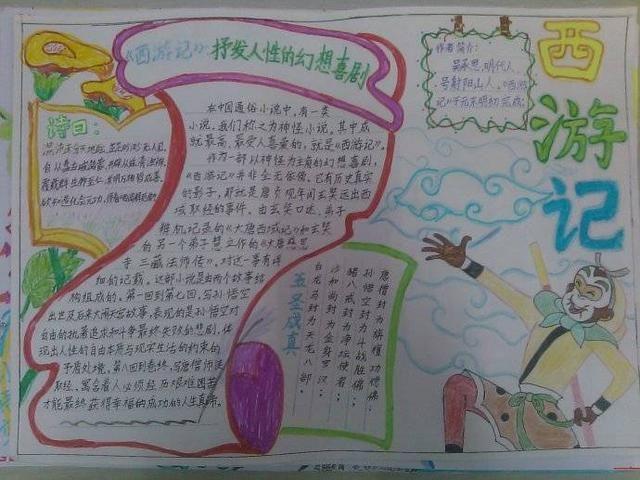 西游记
《西游记》:抒发人性的幻想喜剧
作者简介:
吴承恩,明代人,
号射阳山人。《西游
记》于万末明初完成。
诗曰:
在中国通俗小说中,有一类
小说,我们称之为神怪小说,其中成
就最高、最受人喜爱的,就是《西游记》。
作为一部以神怪为主角的幻想喜剧,
《西游记》并非全无依傍,它有历史真实
的影子,那就是唐贞观年间玄奘远出西
域取经的事件。由玄奘口述、弟子
辩机记录的《大唐西域记》和玄奘
的另一个弟子慧立作的《大唐慈恩
寺三藏法师传》,对这一事有详
细的记载。这部小说是由两个故事结
构组成的。第一回到第七回,写孙悟空
出世及后来大闹天宫故事,表现的是孙悟空对
自由的执著追求和斗争最终失败的悲剧,体
现出人性的自由本质与现实生活的约束的
矛盾处境。第八回到卷终,写唐僧师徒
取经,寓含着人必须经历艰难困苦
才能最终获得幸福的成功的人生真谛。
五圣成真
唐僧封为旃檀功德佛;
孙悟空封为斗战胜佛;
猪八戒封为净坛使者;
沙和尚封为金身罗汉;
白龙马封为天龙八部;